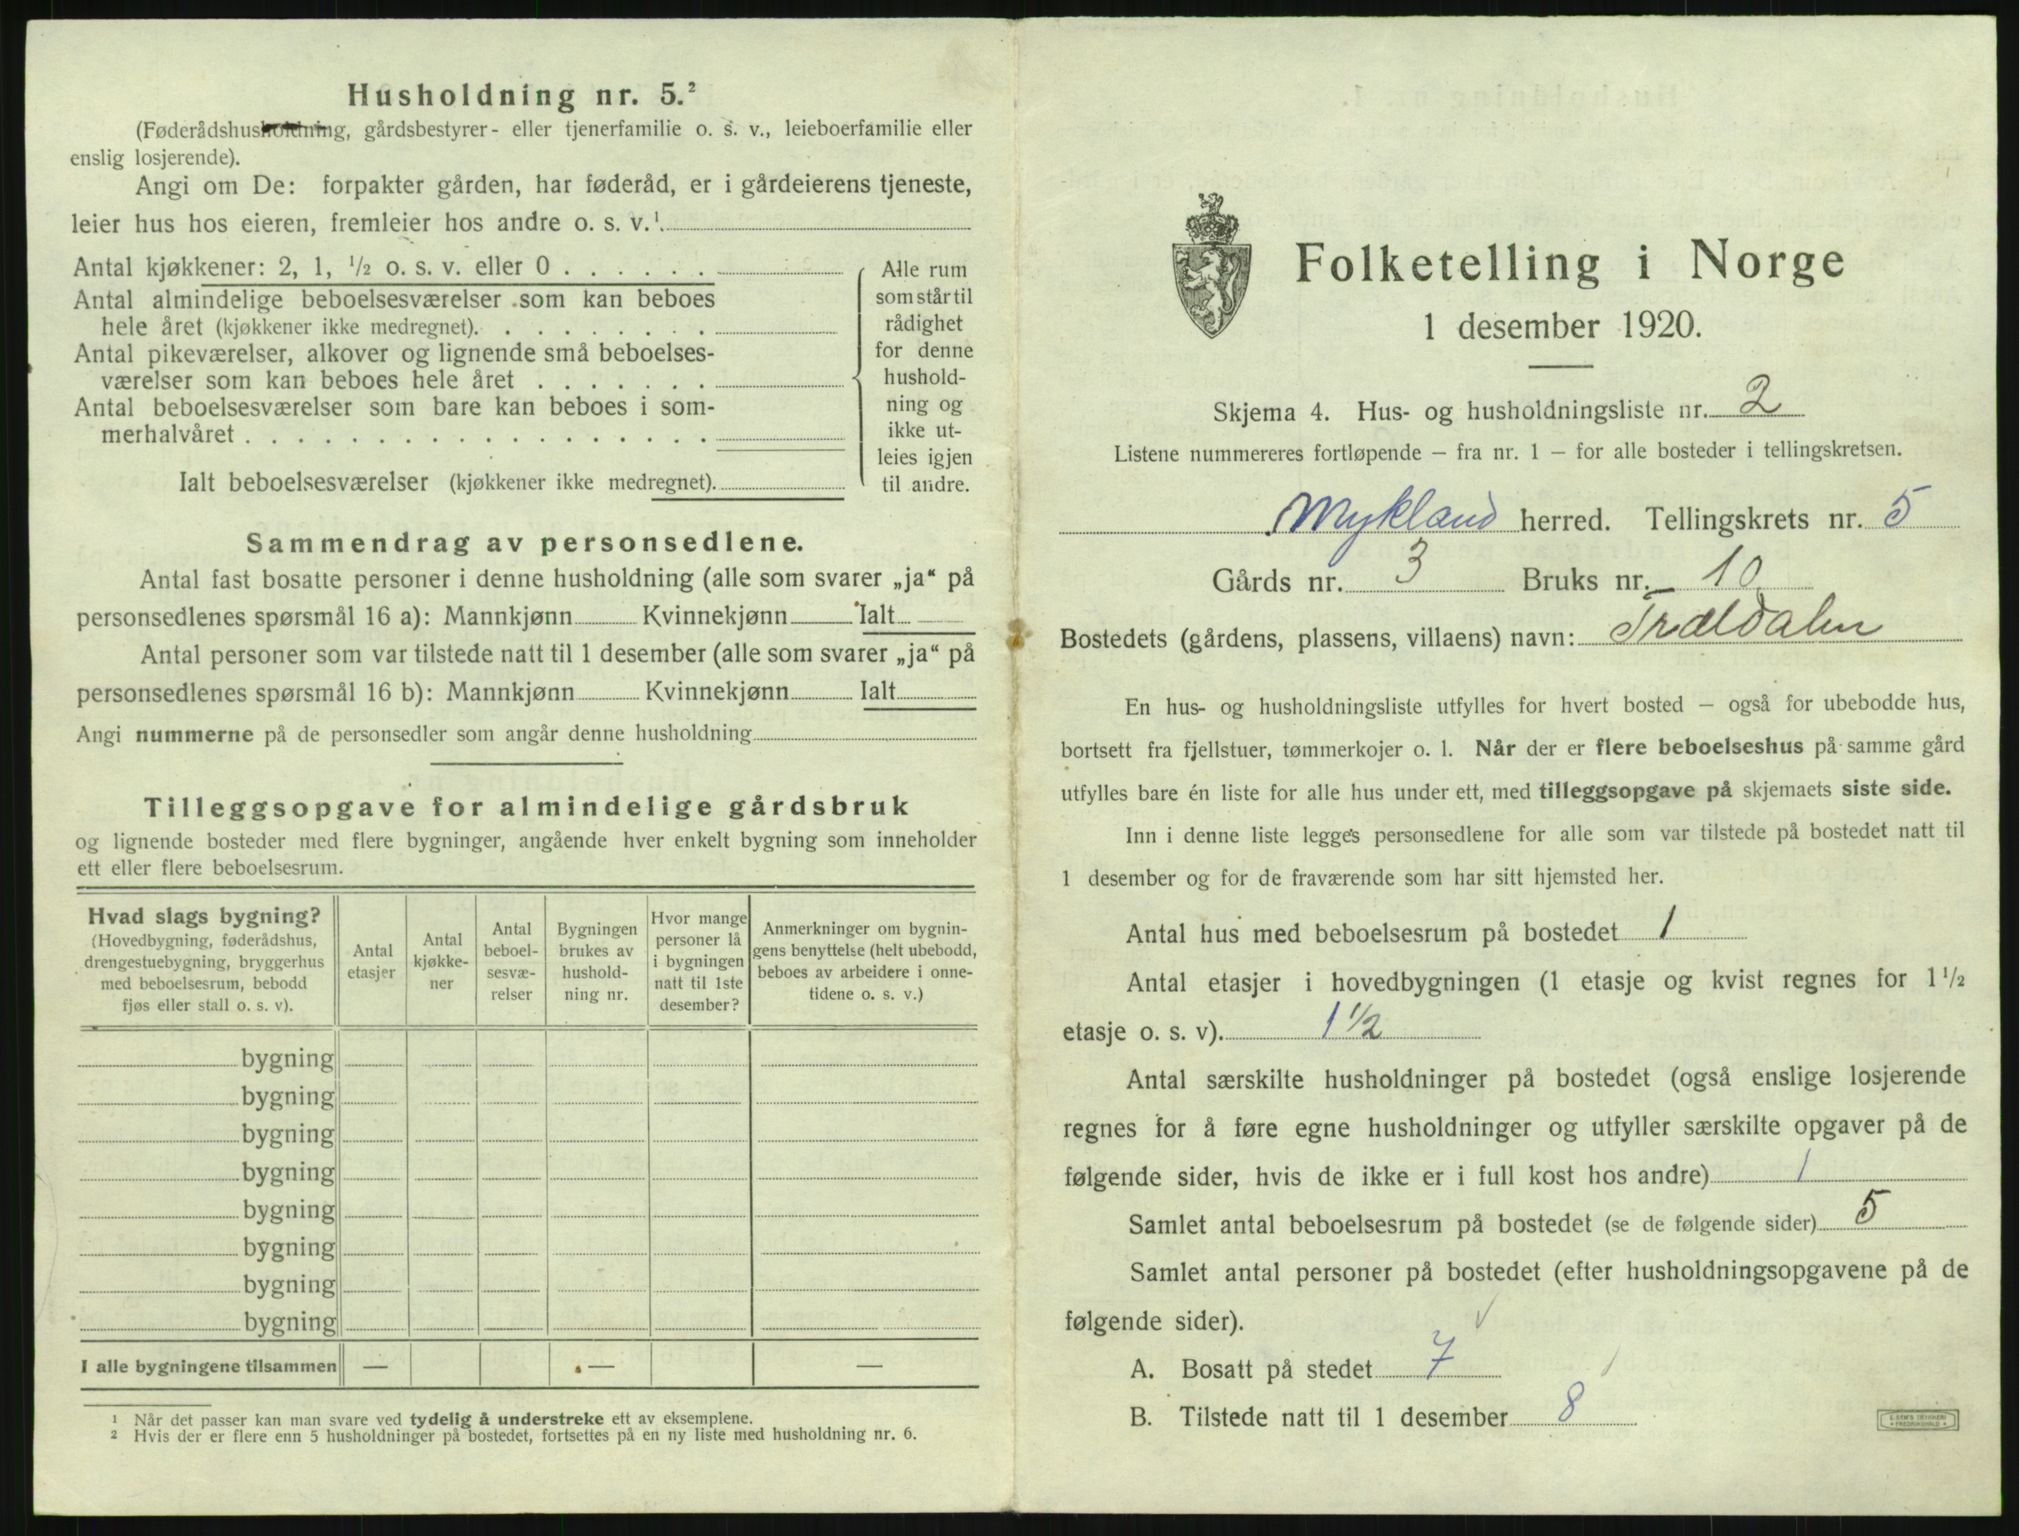 Husholdning nr. 5.²
(Føderådshusholdning, gårdsbestyrer- eller tjenerfamilie o. s. v., leieboerfamilie eller
enslig losjerende).
Angi om De: forpakter gården, har føderåd, er i gårdeierens tjeneste,
leier hus hos eieren, fremleier hos andre o. s. v.¹
Antal kjøkkener: 2, 1, ½ o. s. v. eller 0 . . . . . .
Antal almindelige beboelsesværelser som kan beboes
hele året (kjøkkener ikke medregnet). . . . . . . . .
Antal pikeværelser, alkover og lignende små beboelses-
værelser som kan beboes hele året . . . . . . .
Antal beboelsesværelser som bare kan beboes i som-
merhalvåret . . . . . . . . . . . . . . . . . .
Ialt beboelsesværelser (kjøkkener ikke medregnet).
Alle rum
som står til
rådighet
for denne
hushold-
ning og
ikke ut-
leies igjen
til andre.
Sammendrag av personsedlene.
Antal fast bosatte personer i denne husholdning (alle som svarer „ja“ på
personsedlenes spørsmål 16 a): Mannkjønn Kvinnekjønn Ialt
Antal personer som var tilstede natt til 1 desember (alle som svarer „ja“ på
personsedlenes spørsmål 16 b): Mannkjønn Kvinnekjønn Ialt
Angi nummerne på de personsedler som angår denne husholdning
Tilleggsopgave for almindelige gårdsbruk
og lignende bosteder med flere bygninger, angående hver enkelt bygning som inneholder
ett eller flere beboelsesrum.
Hvad slags bygning?
(Hovedbygning, føderådshus,
drengestuebygning, bryggerhus
med beboelsesrum, bebodd
fjøs eller stall o. s. v).
Antal
etasjer
Antal
kjøkke-
ner
Antal
beboel-
sesvæ-
relser
Bygningen
brukes av
hushold-
ning nr.
Hvor mange
personer lå
i bygningen
natt til 1ste
desember?
Anmerkninger om bygnin-
gens benyttelse (helt ubebodd,
beboes av arbeidere i onne-
tidene o. s. v.)
bygning
bygning
bygning
bygning
bygning
bygning
bygning
bygning
I alle bygningene tilsammen — — —
¹ Når det passer kan man svare ved tydelig å understreke ett av eksemplene.
² Hvis der er flere enn 5 husholdninger på bostedet, fortsettes på en ny liste med husholdning nr. 6.
Folketelling i Norge
1 desember 1920.
Skjema 4. Hus- og husholdningsliste nr. 2
Listene nummereres fortløpende – fra nr. 1 – for alle bosteder i tellingskretsen.
Mykland herred. Tellingskrets nr. 5
Gårds nr. 3 Bruks nr. 10
Bostedets (gårdens, plassens, villaens) navn: Trældalen
En hus- og husholdningsliste utfylles for hvert bosted – også for ubebodde hus,
bortsett fra fjellstuer, tømmerkojer o. l. Når der er flere beboelseshus på samme gård
utfylles bare én liste for alle hus under ett, med tilleggsopgave på skjemaets siste side.
Inn i denne liste legges personsedlene for alle som var tilstede på bostedet natt til
1 desember og for de fraværende som har sitt hjemsted her.
Antal hus med beboelsesrum på bostedet 1
Antal etasjer i hovedbygningen (1 etasje og kvist regnes for 1½
etasje o. s. v). 1½
Antal særskilte husholdninger på bostedet (også enslige losjerende
regnes for å føre egne husholdninger og utfyller særskilte opgaver på de
følgende sider, hvis de ikke er i full kost hos andre) 1
Samlet antal beboelsesrum på bostedet (se de følgende sider) 5
Samlet antal personer på bostedet (efter husholdningsopgavene på de
følgende sider).
A. Bosatt på stedet 7
B. Tilstede natt til 1 desember 8